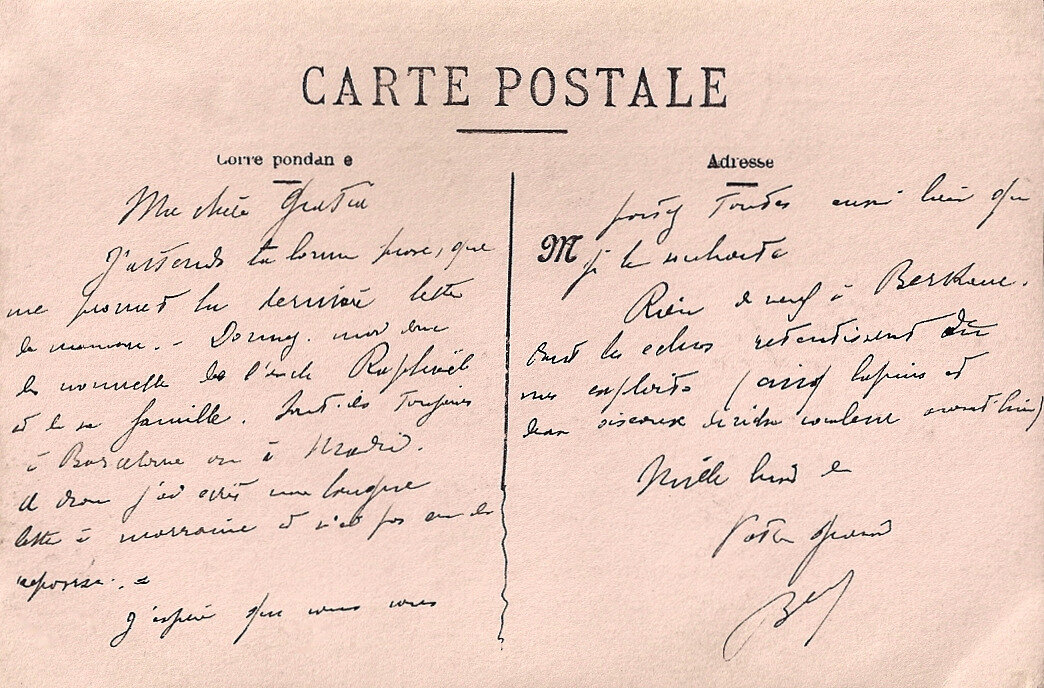 CARTE POSTALE
Corre pondan e
Adresse
Ma chère
J'attends ta bonne prose, que
me promet la dernière lettre
de maman. - Donnez moi donc
des nouvelles de l'oncle Raphaël
et de sa famille. Sont-ils toujours
à Barcelone ou à Madrid.
d'Oran j'ai écrit une longue
lettre à marraine et n'ai pas eu de
réponse. -
J'espère que vous vous
portez toutes aussi bien que
M
je le souhaite
Rien de neuf à Berkane.
les échos retentissent de
mes exploits (cinq lapins et
deux oiseaux couleur avant hier)
Mille
Votre grand